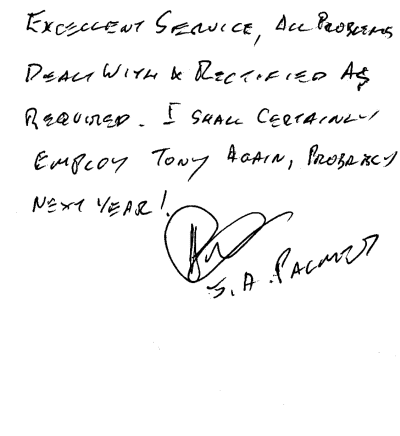 EXCELLENT SERVICE, ALL PROBLEMS
DEALT WITH & RECTIFIED AS
REQUIRED. I SHALL CERTAINLY
EMPLOY TONY AGAIN, PROBABLY
NEXT YEAR!
S. A.